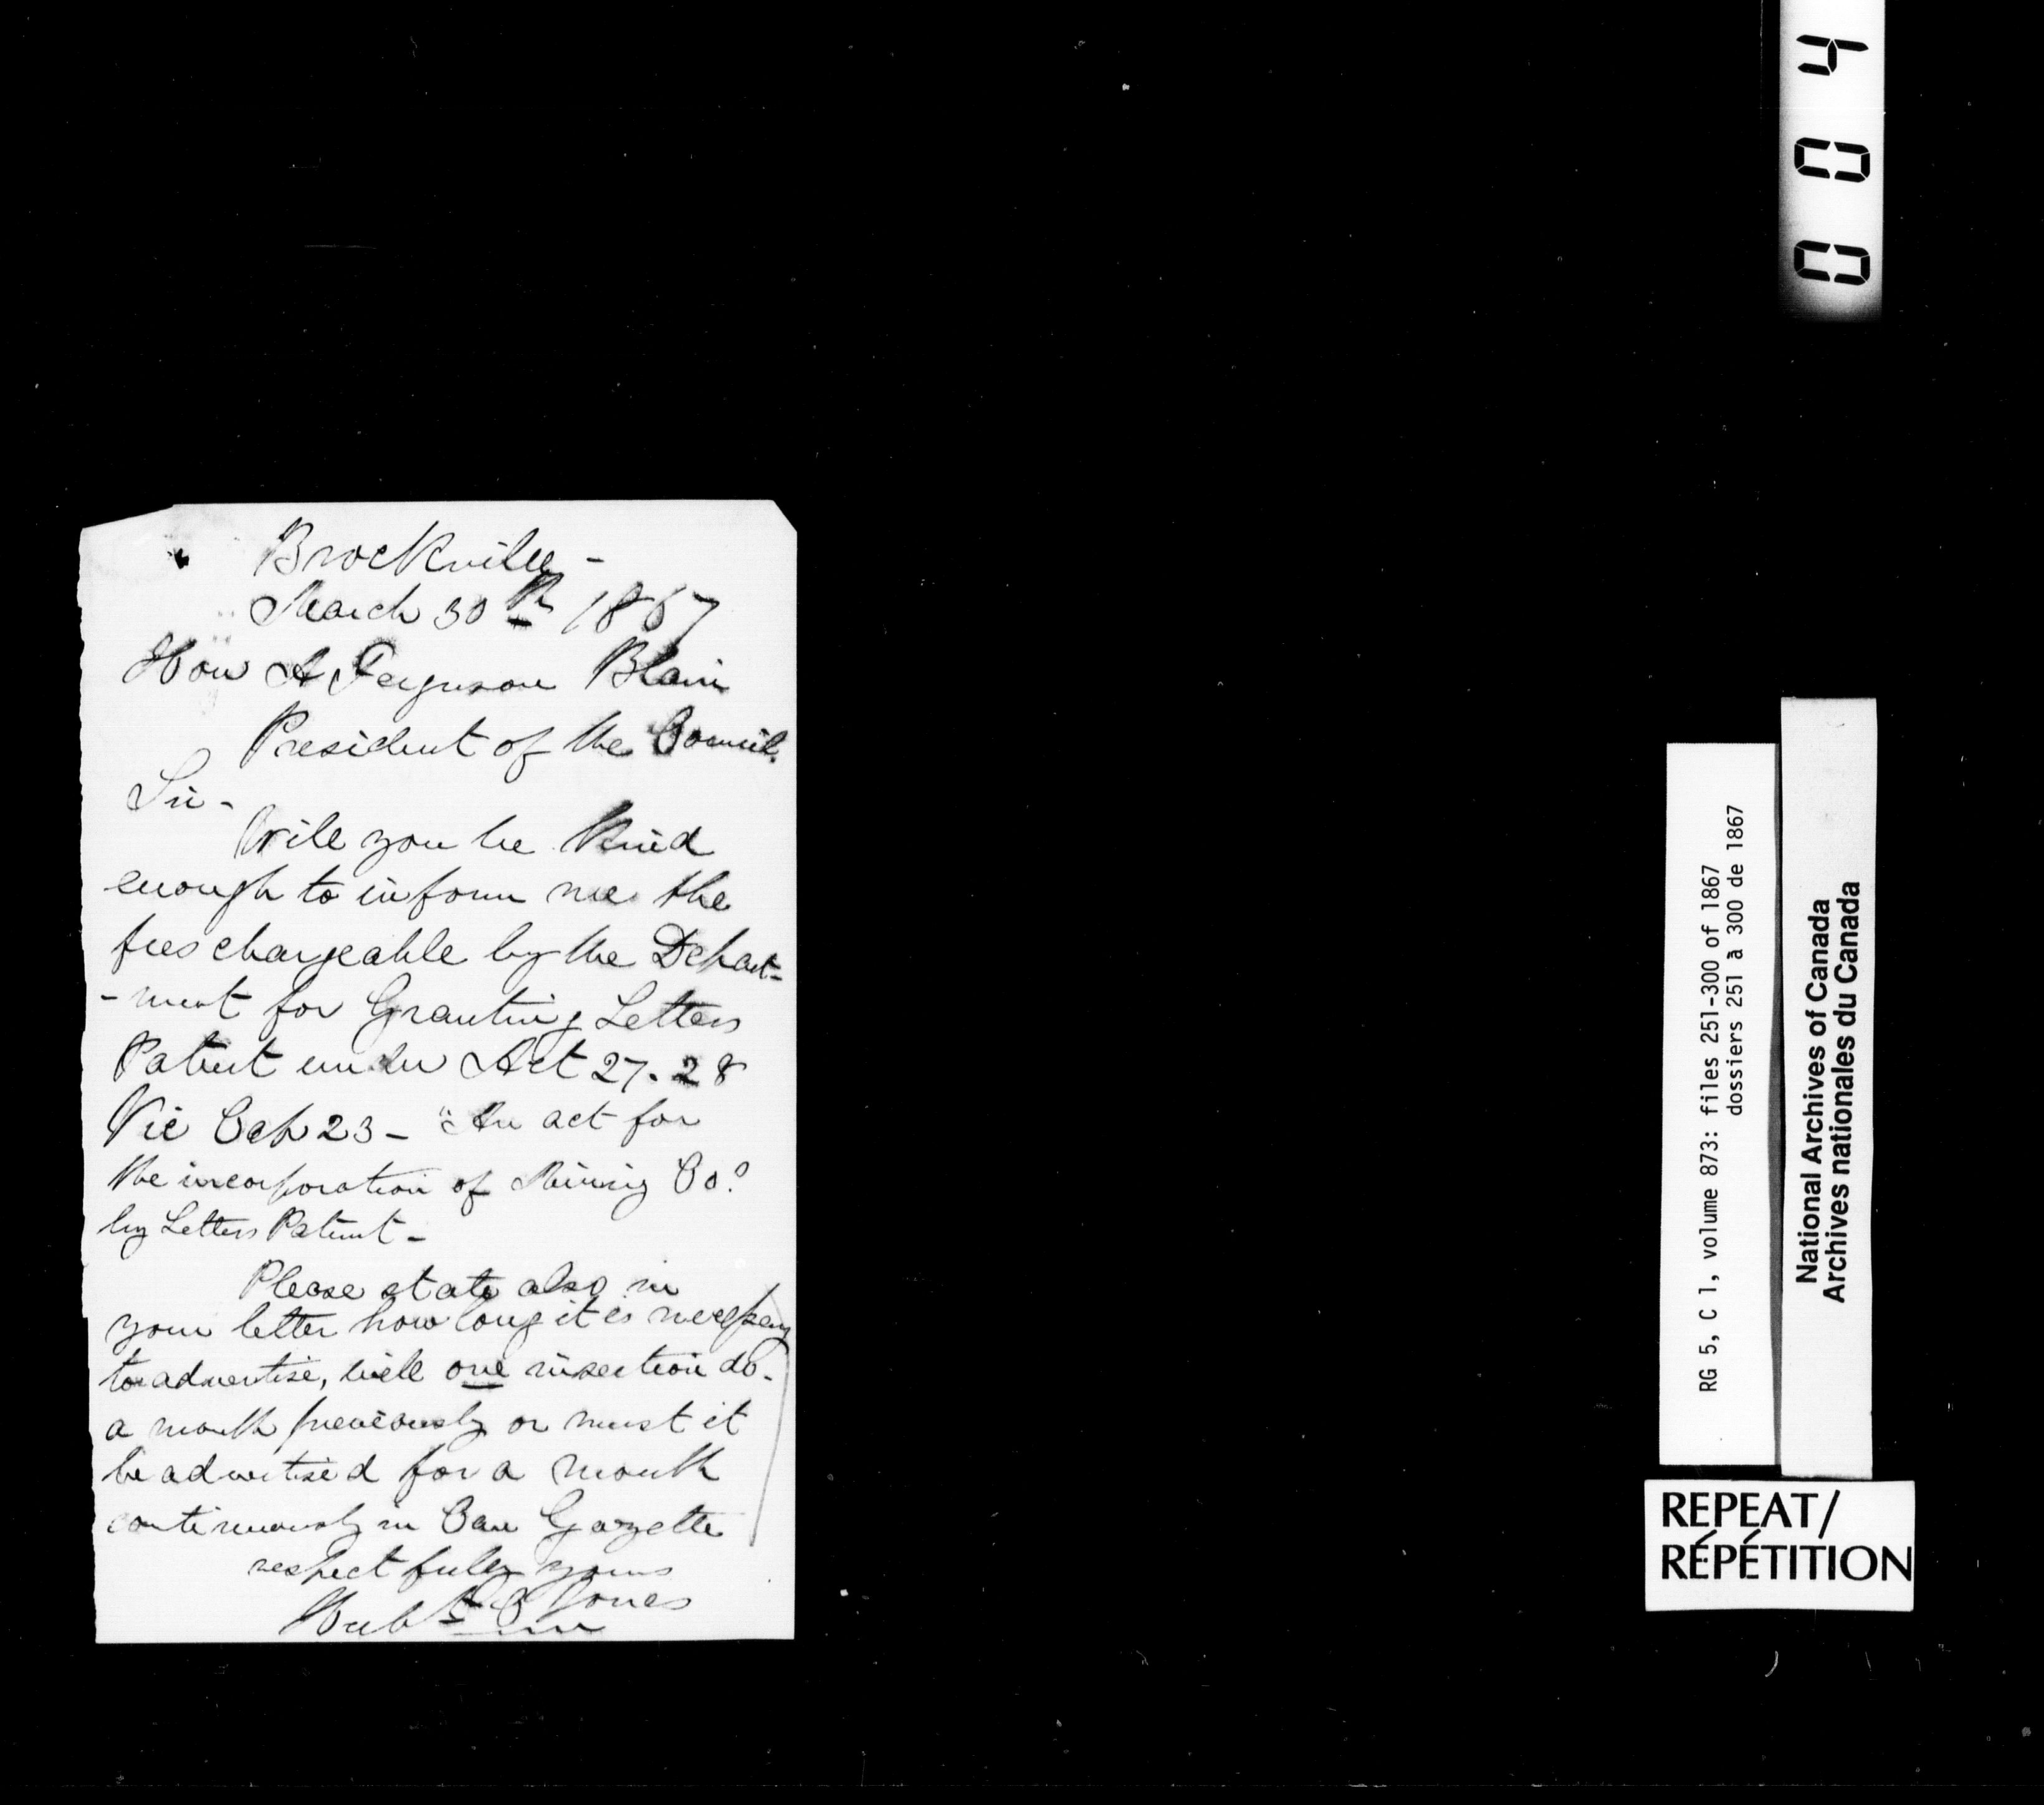 Brockville -
March 30th 1867
Hon A Ferguson Blair
President of the Council.
Sir -
Will you be kind
enough to inform me the
fees chargeable by the Depart-
-ment for Granting Letters
Patent under Act 27.28
Vic Cap 23 - "An act for
the incorporation of Mining Co.s
by Letters Patent -
Please state also in
your letter how long it is necessary
to advertise, will one insertion do -
a month previously or must it
be advertised for a month
continuously in Can Gazette
respectfully yours
Jones
004
RG 5, C 1, volume 873: files 251-300 of 1867
dossiers 251 à 300 de 1867
National Archives of Canada
Archives nationales du Canada
REPEAT/
RÉPÉTITION